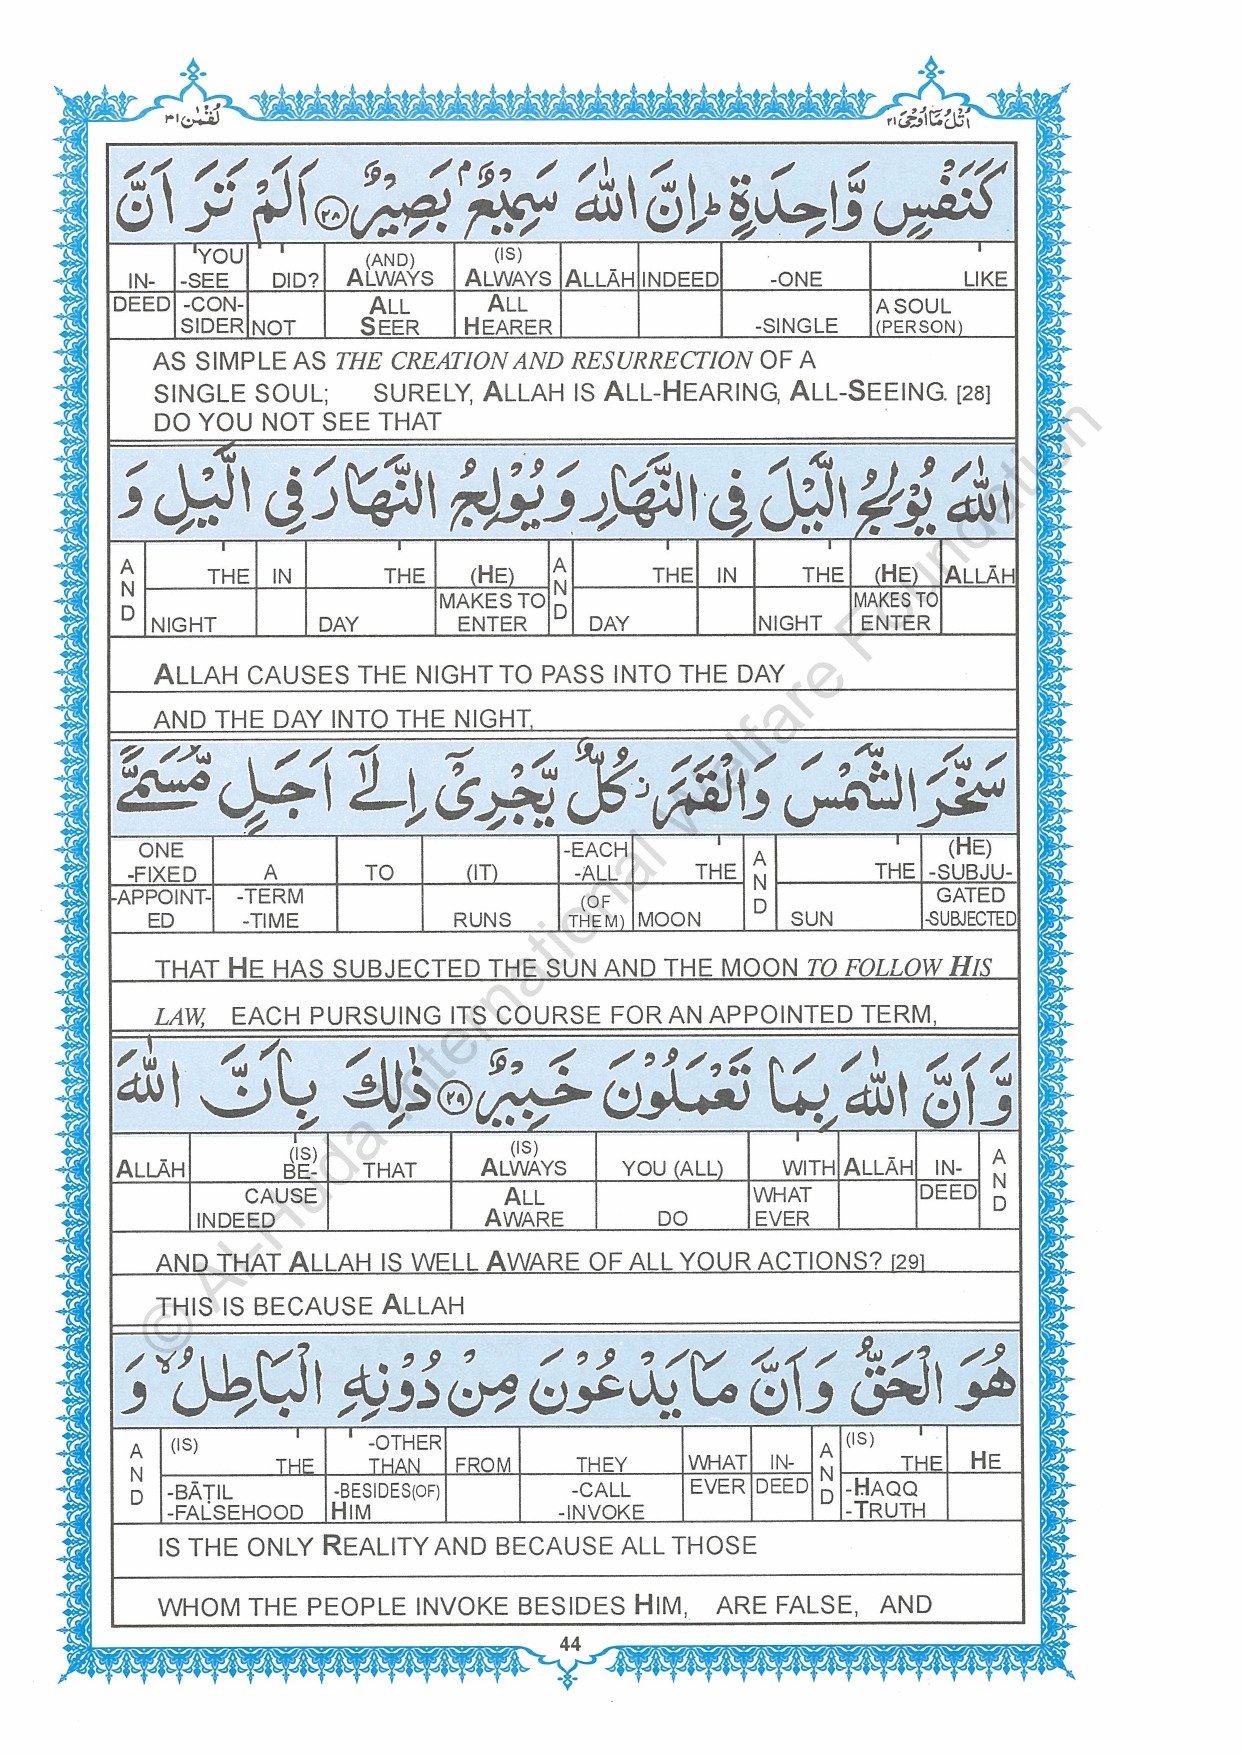 لُقْمٰن ٣١
اُتْلُ مَا اُوْحِیَ ٢١
كَنَفْسٍ وَّاحِدَةٍ ؕ اِنَّ اللّٰهَ سَمِیْعٌۢ بَصِیْرٌ ﴿٢٨﴾ اَلَمْ تَرَ اَنَّ
IN- YOU -SEE DID? (AND) ALWAYS (IS) ALWAYS ALLĀH INDEED -ONE LIKE
DEED -CON-SIDER NOT ALL SEER ALL HEARER -SINGLE A SOUL (PERSON)
AS SIMPLE AS THE CREATION AND RESURRECTION OF A
SINGLE SOUL; SURELY, ALLAH IS ALL-HEARING, ALL-SEEING. [28]
DO YOU NOT SEE THAT
اللّٰهَ یُوْلِجُ الَّیْلَ فِی النَّهَارِ وَ یُوْلِجُ النَّهَارَ فِی الَّیْلِ وَ
AND THE IN THE (HE) AND THE IN THE (HE) ALLĀH
NIGHT DAY MAKES TO ENTER DAY NIGHT MAKES TO ENTER
ALLAH CAUSES THE NIGHT TO PASS INTO THE DAY
AND THE DAY INTO THE NIGHT,
سَخَّرَ الشَّمْسَ وَ الْقَمَرَ ؗ كُلٌّ یَّجْرِیْۤ اِلٰۤی اَجَلٍ مُّسَمًّی
ONE -FIXED A TO (IT) -EACH -ALL THE AND THE (HE) -SUBJU-
-APPOINT-ED -TERM -TIME RUNS (OF THEM) MOON SUN GATED -SUBJECTED
THAT HE HAS SUBJECTED THE SUN AND THE MOON TO FOLLOW HIS
LAW, EACH PURSUING ITS COURSE FOR AN APPOINTED TERM,
وَّ اَنَّ اللّٰهَ بِمَا تَعْمَلُوْنَ خَبِیْرٌ ﴿٢٩﴾ ذٰلِكَ بِاَنَّ اللّٰهَ
ALLĀH (IS) BE- THAT (IS) ALWAYS YOU (ALL) WITH ALLĀH IN- AND
CAUSE INDEED ALL AWARE DO WHAT EVER DEED
AND THAT ALLAH IS WELL AWARE OF ALL YOUR ACTIONS? [29]
THIS IS BECAUSE ALLAH
هُوَ الْحَقُّ وَ اَنَّ مَا یَدْعُوْنَ مِنْ دُوْنِهِ الْبَاطِلُ ۙ وَ
AND (IS) THE -OTHER THAN FROM THEY WHAT IN- AND (IS) THE HE
-BĀṬIL -FALSEHOOD -BESIDES(OF) HIM -CALL -INVOKE EVER DEED -HAQQ -TRUTH
IS THE ONLY REALITY AND BECAUSE ALL THOSE
WHOM THE PEOPLE INVOKE BESIDES HIM, ARE FALSE, AND
44
© Al-Huda International Welfare Foundation